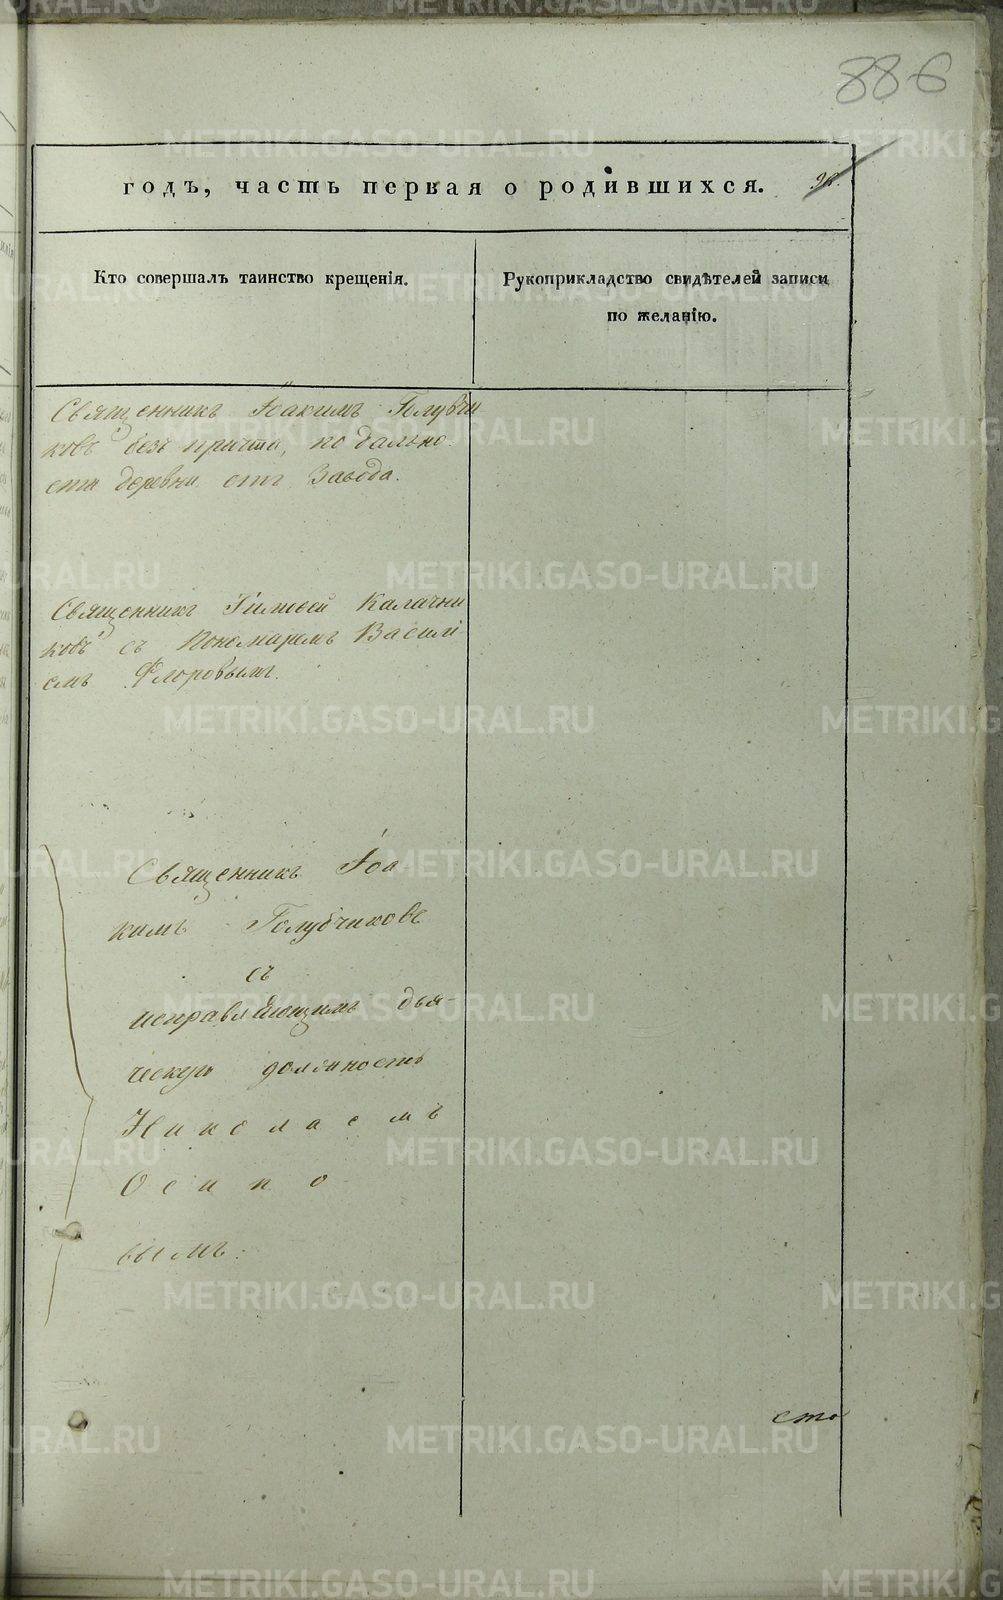 886
годъ, часть первая о родившихся.
Кто совершалъ таинство крещенія.
Рукоприкладство свидѣтелей записи
по желанію.
Священникъ Іоакимъ Голубчи
ковъ безъ причта, по дально
сти деревни отъ Завода.
Священникъ Тимоѳей Калачни
ковъ съ Пономаремъ Василі
емъ Флоровымъ.
Священникъ Іоа
кимъ Голубчиковъ
съ
исправляющимъ дья-
ческую должность
Николаемъ
Осипо
вымъ.
сто
METRIKI.GASO-URAL.RU